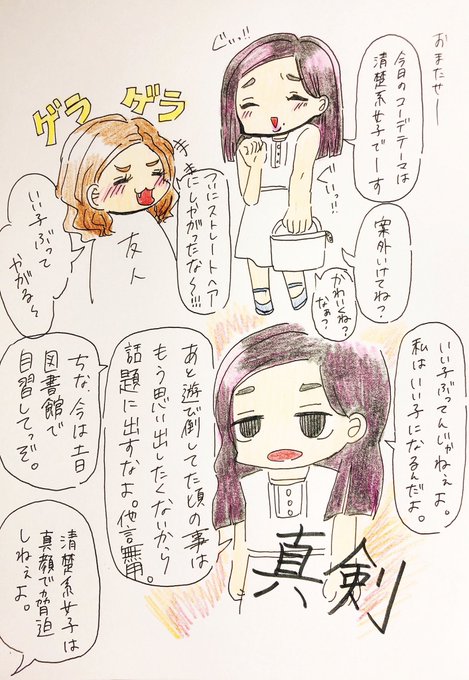 おまたせー
今日のコーデテーマは
清楚系女子でーす
ぐいっ!!
案外いけてね?
ぐいっ!!
かわいくね?
なぁ?
ゲラゲラ
ついにストレートヘア
にしやがったな〜!!!
友人
いい子ぶって
やがる〜
いい子ぶってんじゃねぇよ。
私はいい子になるんだよ。
あと遊び倒してた頃の事は
もう思い出したくないから
話題に出すなよ。他言無用。
ちな、今は毎日
図書館で
自習してっぞ。
真剣
清楚系女子は
真顔で脅迫
しねぇよ。